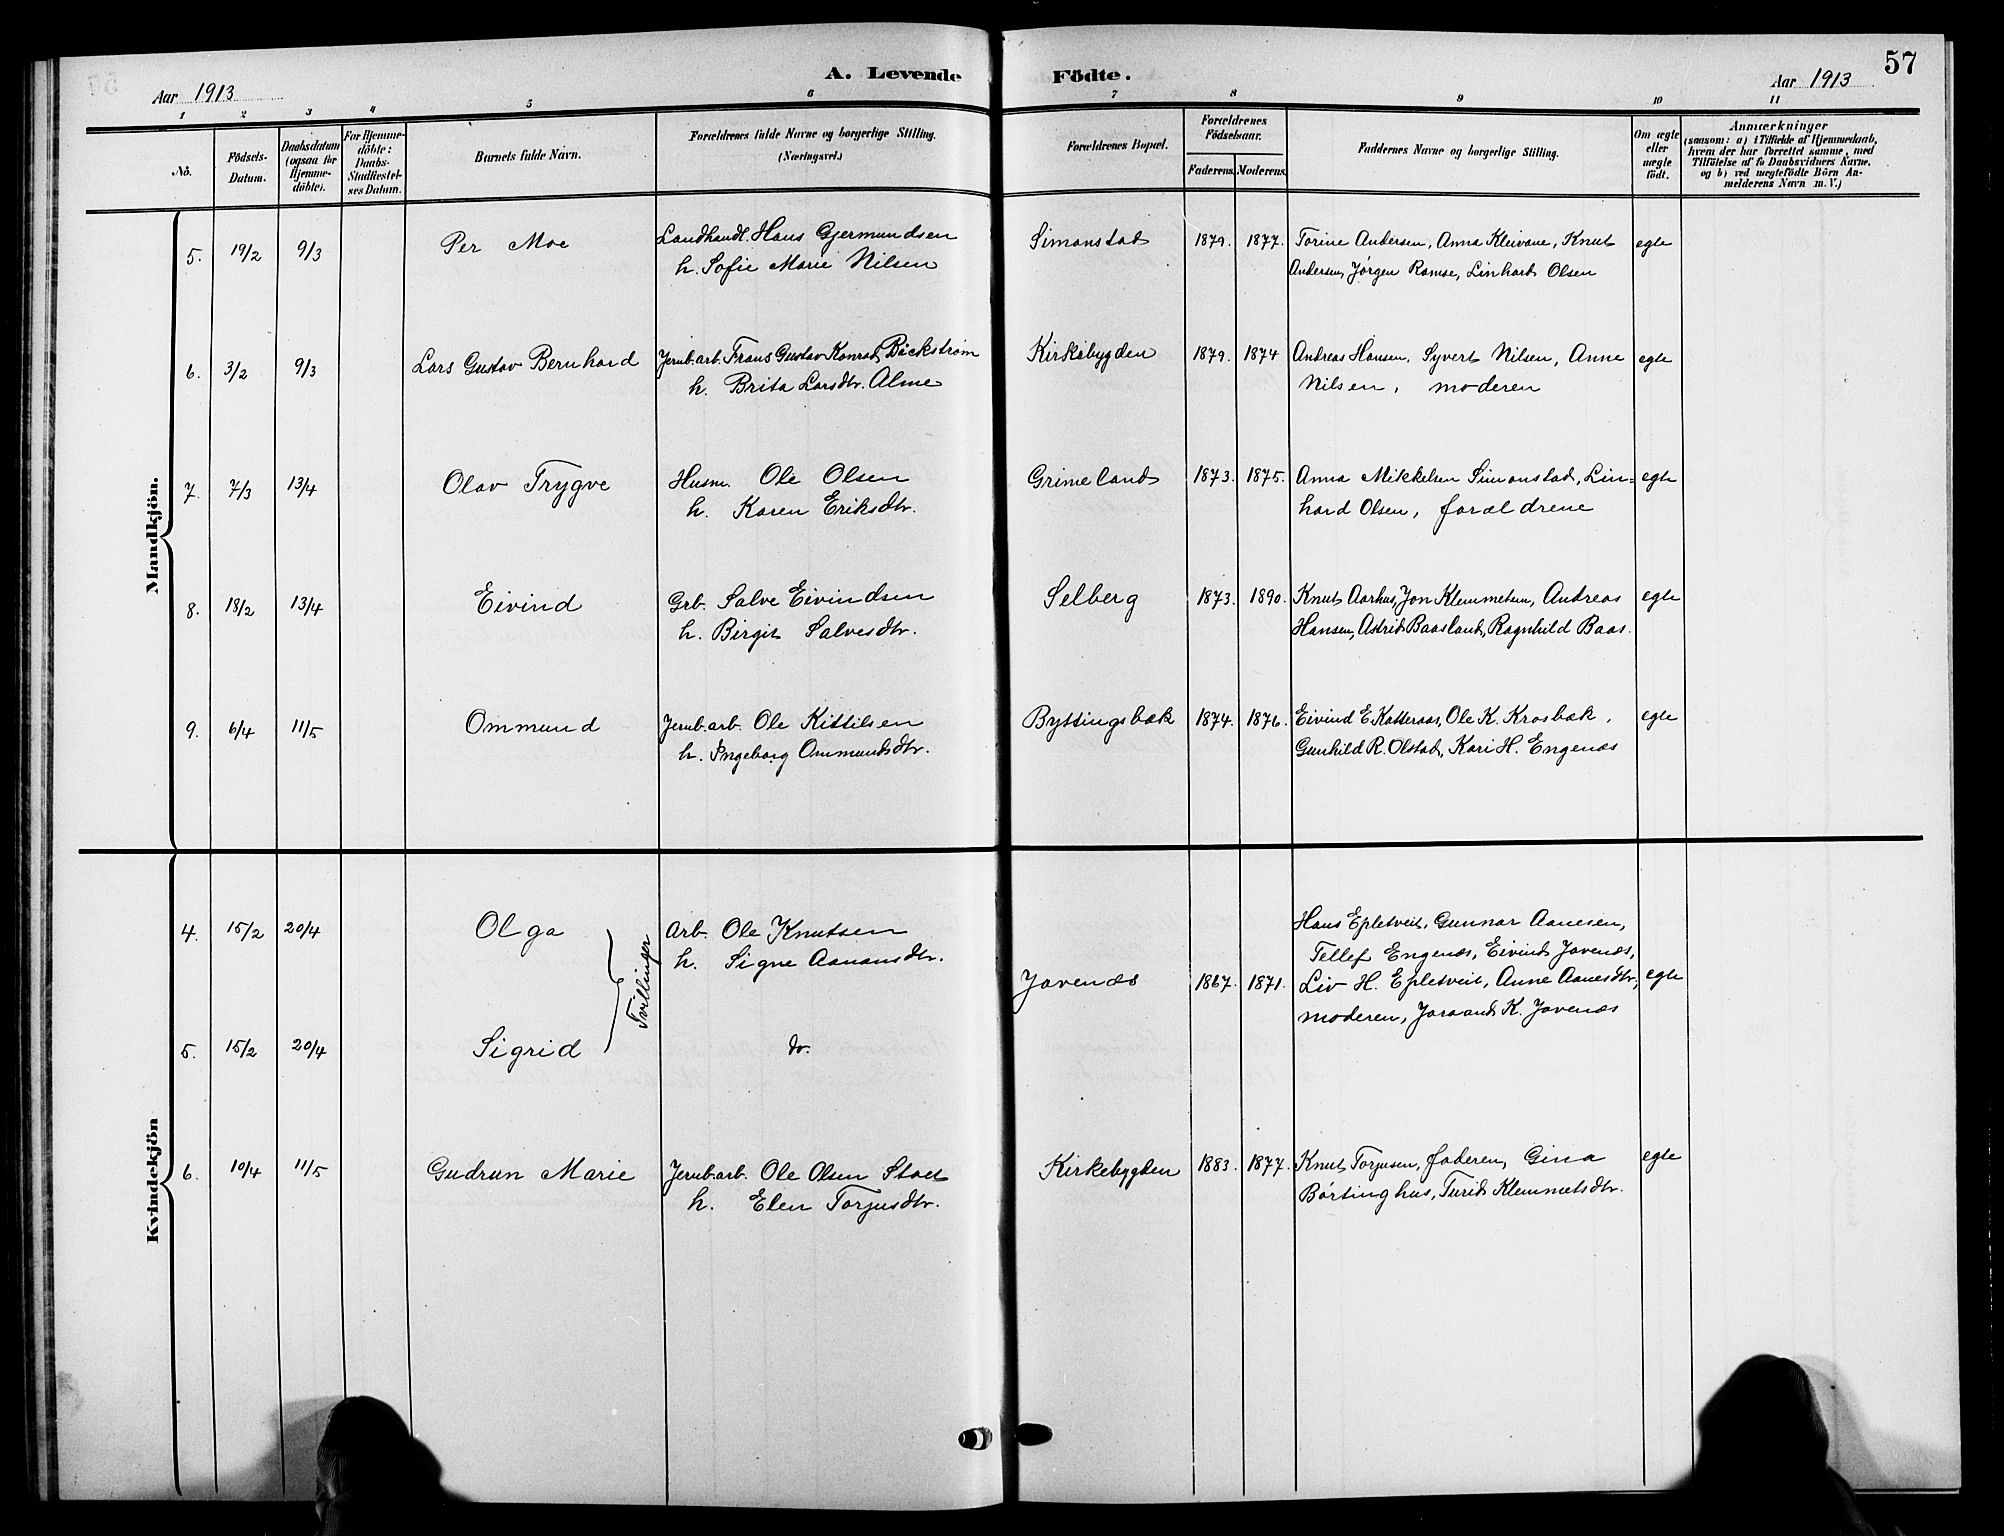 57
A. Levende Födte.
Aar 1913
Aar 1913
1 2 3 4 5 6 7 8 9 10 11
No.
Födsels-Datum.
Daabsdatum (ogsaa for Hjemme-döbte).
For Hjemme-döbte: Daabs-Stadfæstel-ses Datum.
Barnets fulde Navn.
Forældrenes fulde Navne og borgerlige Stilling.
(Næringsvei.)
Forældrenes Bopæl.
Forældrenes Födselsaar.
Faderens. Moderens.
Faddernes Navne og borgerlige Stilling.
Om ægte eller uægte födt.
Anmærkninger
(saasom: a) i Tilfælde af Hjemmedaab,
hvem der har forrettet samme, med
Tilföielse af to Daabsvidners Navne,
og b) ved uægtefödte Börn An-
melderens Navn m. V.)
Mandkjön.
5. 19/2 9/3 Per Moe Landhandl. Hans Gjermundsen Simonstad 1879. 1877. Torine Andersen, Anna Kleivane, Knut egte
h. Sofie Marie Nilsen Andersen, Jørgen Ramse, Linhard Olsen
6. 3/2 9/3 Lars Gustav Bernhard Jernb.arb. Frans Gustav Konrad Bäckstrøm Kirkebygden 1879. 1874 Andreas Hansen, Syvert Nilsen, Anne egte
h. Brita Larsdtr. Alme Nilsen, moderen
7. 7/3 13/4 Olav Trygve Husm. Ole Olsen Grimeland 1873. 1875. Anna Mikkelsen Simonstad, Lin= egte
h. Karen Eriksdtr. hard Olsen, forældrene
8. 18/2 13/4 Eivind Grb. Salve Eivindsen Selberg 1873. 1890. Knut Aarhus, Jon Klemmetsen, Andreas egte
h. Birgit Salvesdtr. Hansen, Astrid Baasland, Ragnhild Baas.
9. 6/4 11/5 Ommund Jernb.arb. Ole Kittilsen Byttingsbæk 1874. 1876. Eivind E. Katteraas, Ole K. Krosbæk, egte
h. Ingeborg Ommundsdtr. Gunhild R. Olstad, Kari H. Engenæs
Kvindekjön
4. 15/2 20/4 Olga Arb. Ole Knutsen Hans Epletveit, Gunnar Aanesen,
h. Signe Aanonsdtr. Tellef Engenæs, Eivind Jovenæs,
Tvillinger
Jovenæs 1867. 1871. Liv H. Epletveit, Anne Aanesdtr., egte
moderen, Joraand K. Jovenæs
5. 15/2 20/4 Sigrid do.
6. 10/4 11/5 Gudrun Marie Jernb.arb. Ole Olsen Stoet Kirkebygden 1883. 1877. Knut Torjusen, faderen, Gina egte
h. Elen Torjusdtr. Børtinghus, Turid Klemmetsdtr.